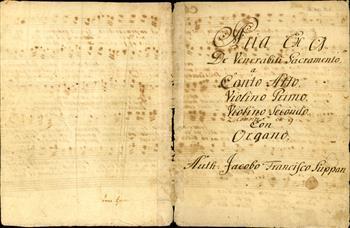 Aria Ex A
De Venerabili Sacramento
a
Canto Alto.
Violino Primo.
Violino Secondo.
Con
Organo.
Auth: Jacobo Francisco Suppan